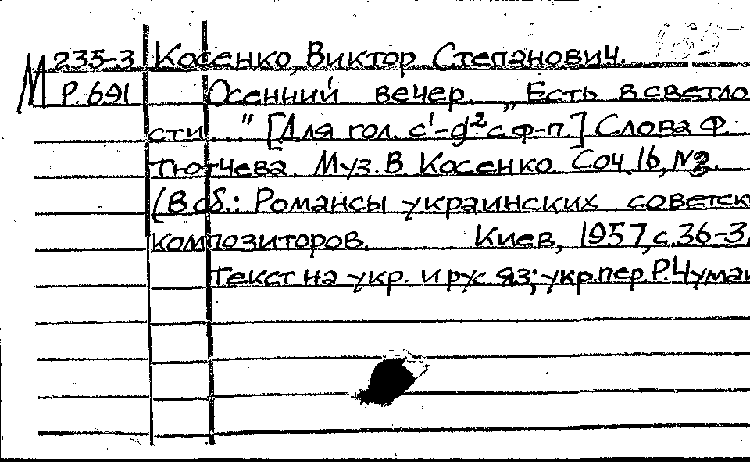 М 235-3 Косенко, Виктор Степанович.
Р.691 Осенний вечер. „Есть в светло
сти..." [Для гол. c¹-g² с ф-п.] Слова Ф.
Тютчева. Муз. В. Косенко. Соч. 16, №3.
(В сб.: Романсы украинских советск
композиторов. Киев, 1957, с. 36-3
Текст на укр. и рус. яз; укр. пер. Р. Чумак